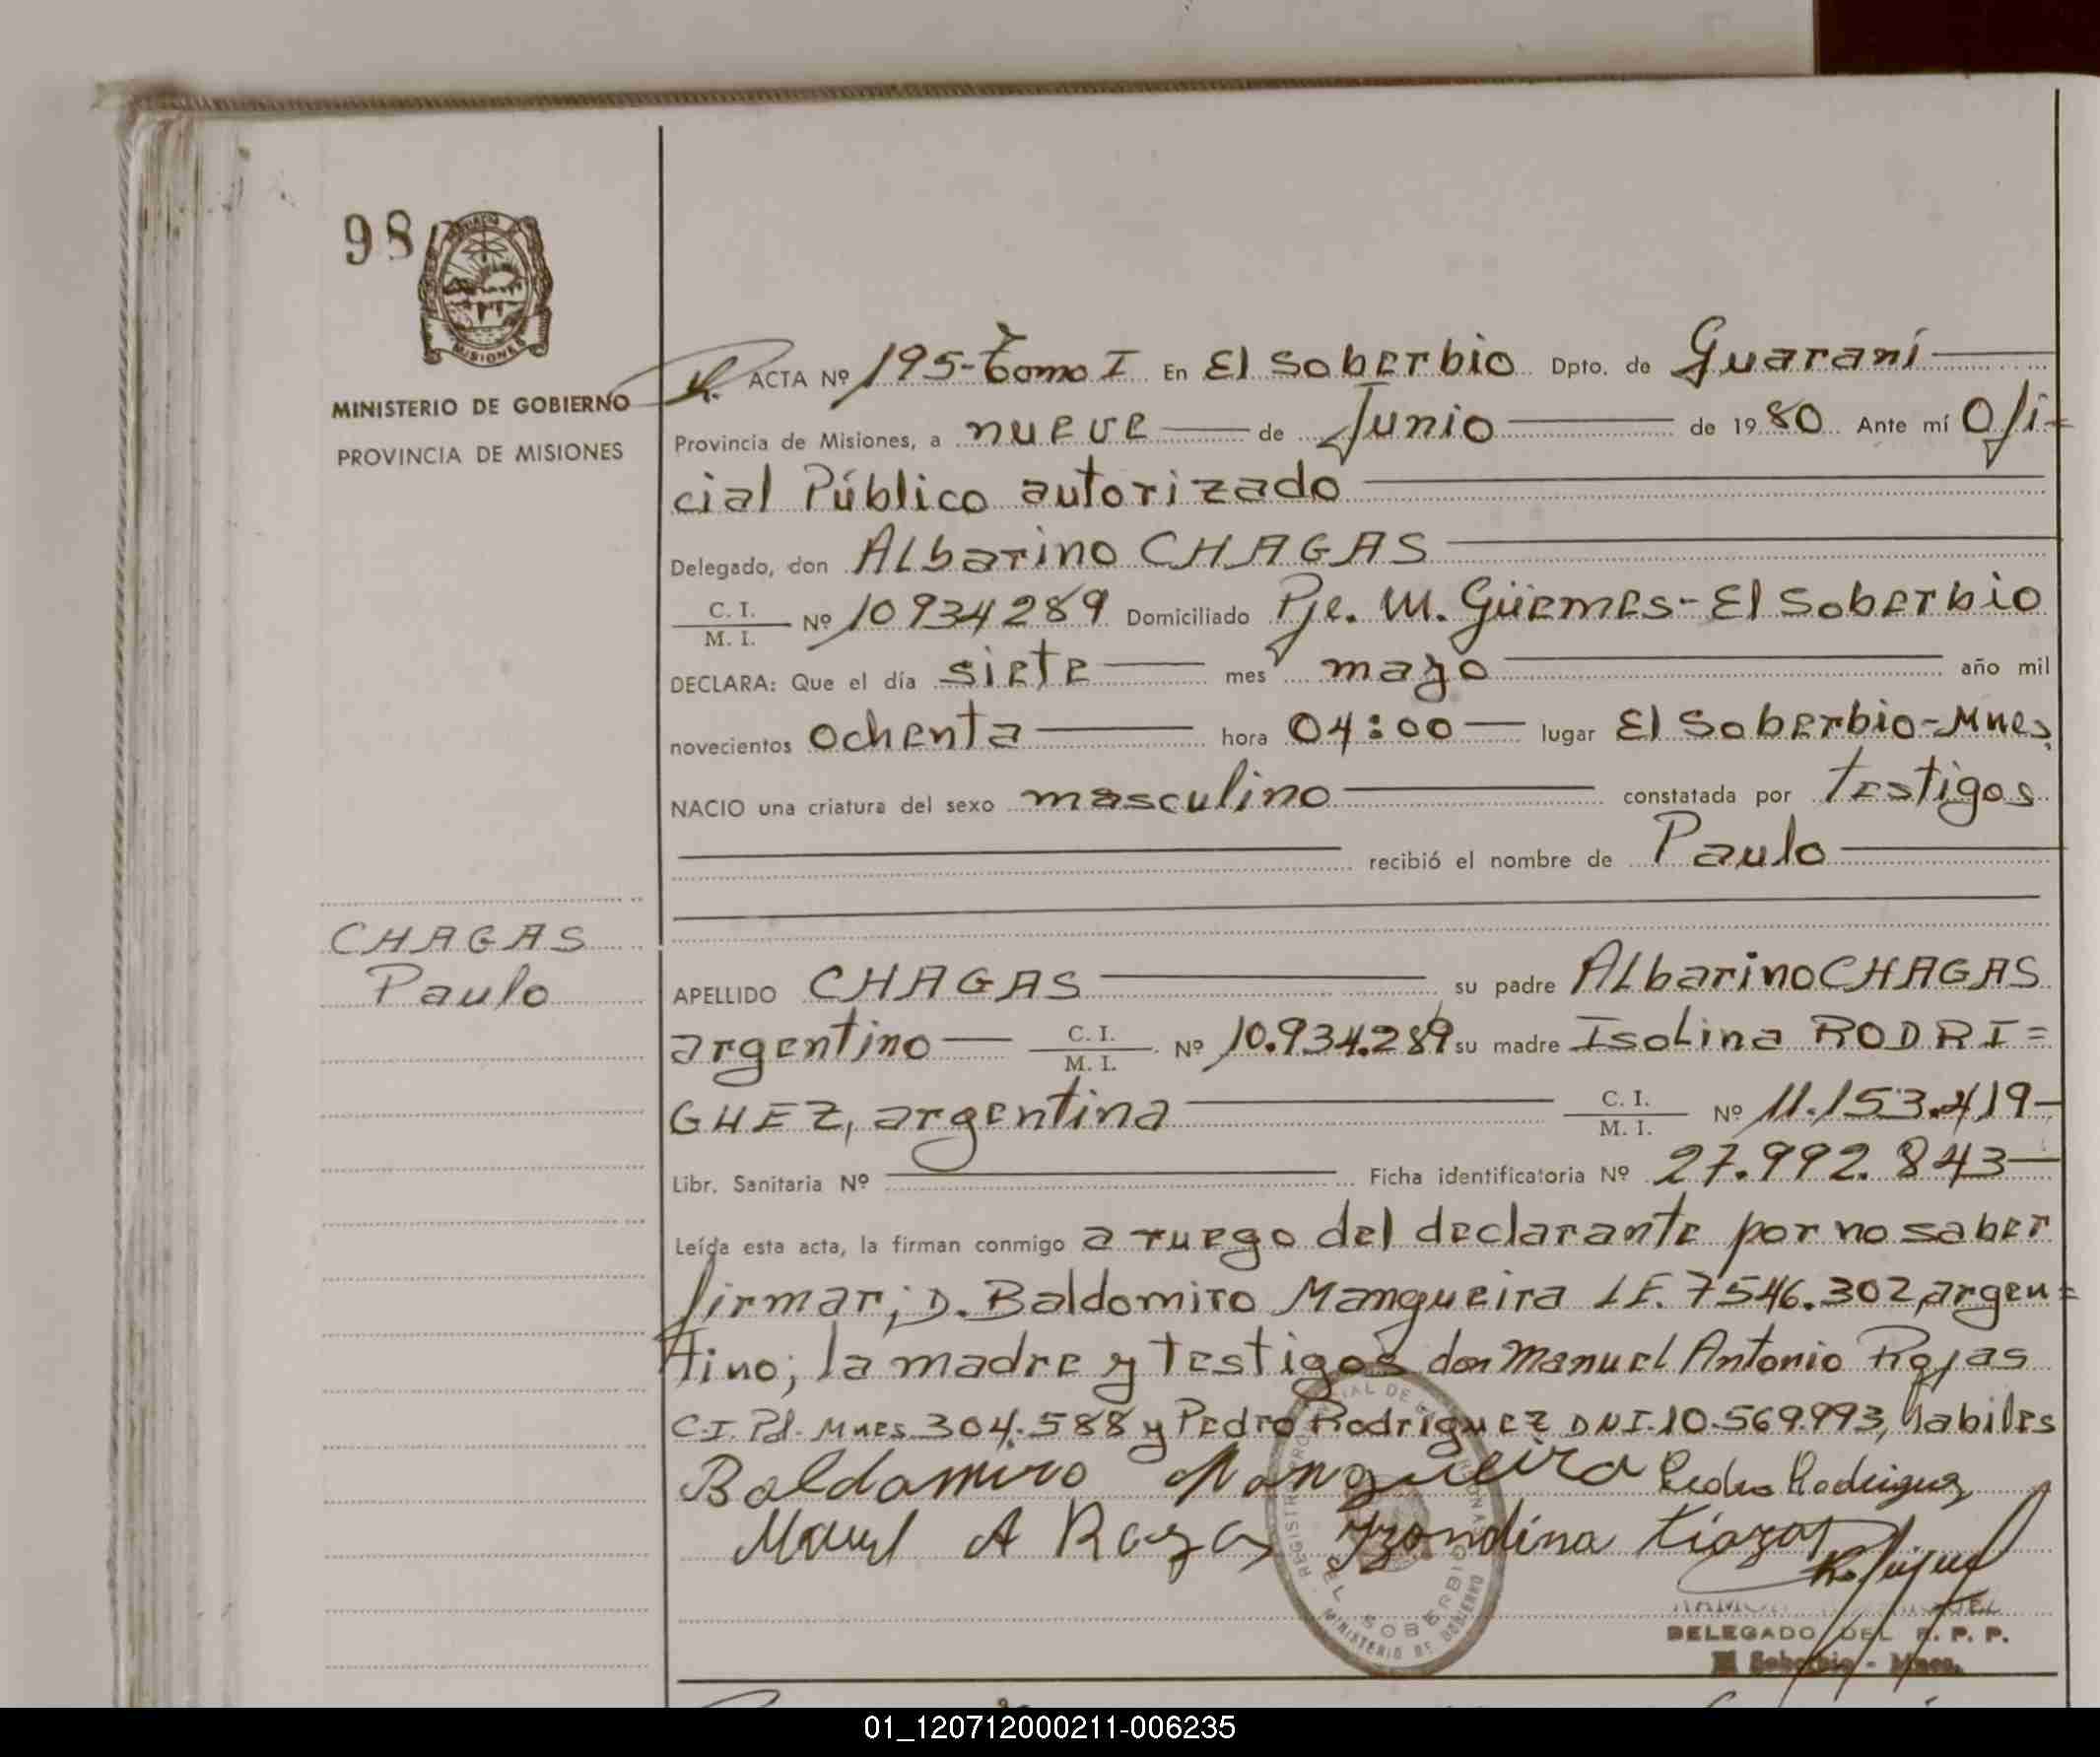 98
PROVINCIA
MISIONES
MINISTERIO DE GOBIERNO
PROVINCIA DE MISIONES
ACTA Nº 195-Tomo I En El Soberbio Dpto. de Guaraní
Provincia de Misiones, a nueve de Junio de 1980 Ante mí Ofi-
cial Público autorizado
Delegado, don Albarino CHAGAS
C. I.
M. I. Nº 10934289 Domiciliado Pje. M. Güemes - El Soberbio
DECLARA: Que el día siete mes mayo año mil
novecientos ochenta hora 04:00 lugar El Soberbio-Mnes.
NACIO una criatura del sexo masculino constatada por testigos
recibió el nombre de Paulo
CHAGAS
Paulo
APELLIDO CHAGAS su padre Albarino CHAGAS
argentino C. I.
M. I. Nº 10.934.289 su madre Isolina RODRI=
GHEZ, argentina C. I.
M. I. Nº 11.153.419-
Libr. Sanitaria Nº Ficha identificatoria Nº 27.992.843
Leída esta acta, la firman conmigo a ruego del declarante por no saber
firmar; D. Baldomiro Mangueira LE. 7546.302, argen=
tino; la madre y testigos don Manuel Antonio Rojas
C.I. Pol. Mnes. 304.588 y Pedro Rodriguez DNI. 10.569.993, habiles
Baldomiro Mangueira Pedro Rodriguez
Manuel A Rojas
EL SOBERBIO
MINISTERIO DE GOBIERNO
DELEGADO DEL R. P. P.
El Soberbio - Mnes.
01_120712000211-006235